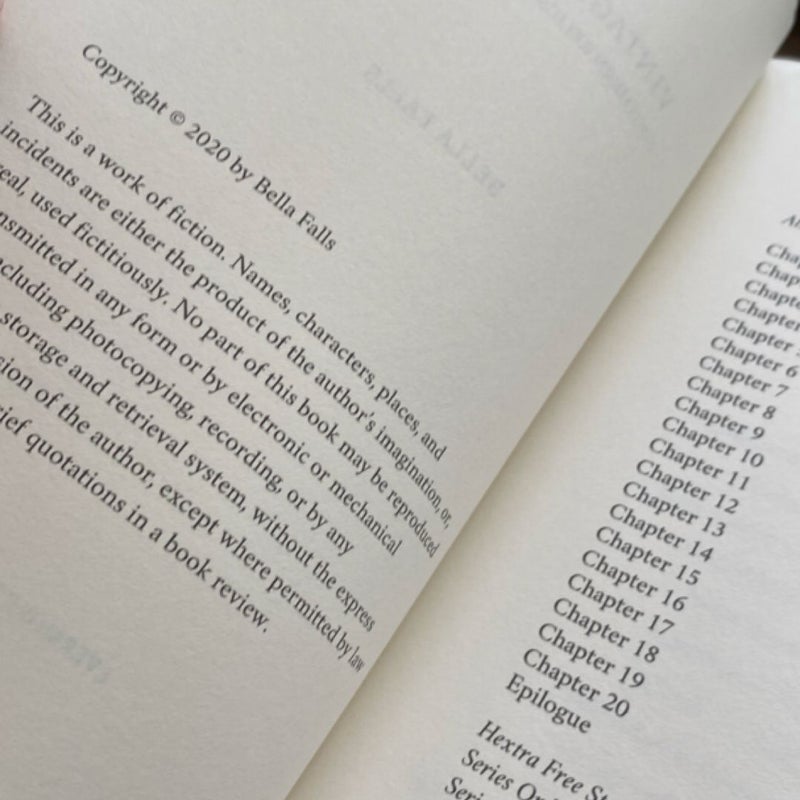 Copyright © 2020 by Bella Falls
This is a work of fiction. Names, characters, places, and
incidents are either the product of the author's imagination, or,
used fictitiously. No part of this book may be reproduced
in any form or by electronic or mechanical
photocopying, recording, or by any
storage and retrieval system, without the express
of the author, except where permitted by law
quotations in a book review.
BELLA FALLS
Chapter 6
Chapter 7
Chapter 8
Chapter 9
Chapter 10
Chapter 11
Chapter 12
Chapter 13
Chapter 14
Chapter 15
Chapter 16
Chapter 17
Chapter 18
Chapter 19
Chapter 20
Epilogue
Hextra Free
Series